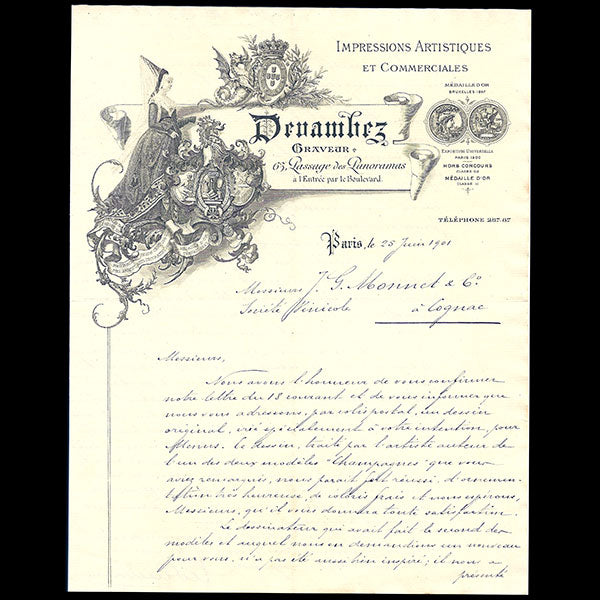 IMPRESSIONS ARTISTIQUES
ET COMMERCIALES
MÉDAILLE D'OR
BRUXELLES 1897
Devambez
GRAVEUR
63, Passage des Panoramas
à l'Entrée par le Boulevard.
EXPOSITION UNIVERSELLE
PARIS 1900
HORS CONCOURS
MÉDAILLE D'OR
TÉLÉPHONE 267-67
Paris, le 25 Juin 1901
Messieurs J. G. Monnet & Co
Société Vinicole à Cognac
Messieurs,
Nous avons l'honneur de vous confirmer
notre lettre du 18 courant et de vous informer que
nous vous adressons, par colis postal, un dessin
original, créé spécialement à votre intention, pour
Menus. Ce dessin, traité par l'artiste auteur de
l'un des deux modèles "Champagnes" que vous
aviez remarqués, nous paraît fort réussi, d'ornemen-
tation très heureuse, de coloris frais et nous espérons,
Messieurs, qu'il vous donnera toute satisfaction.
Le dessinateur qui avait fait le second des
modèles et auquel nous en demandions un nouveau
pour vous, n'a pas été aussi bien inspiré ; il nous a
présenté